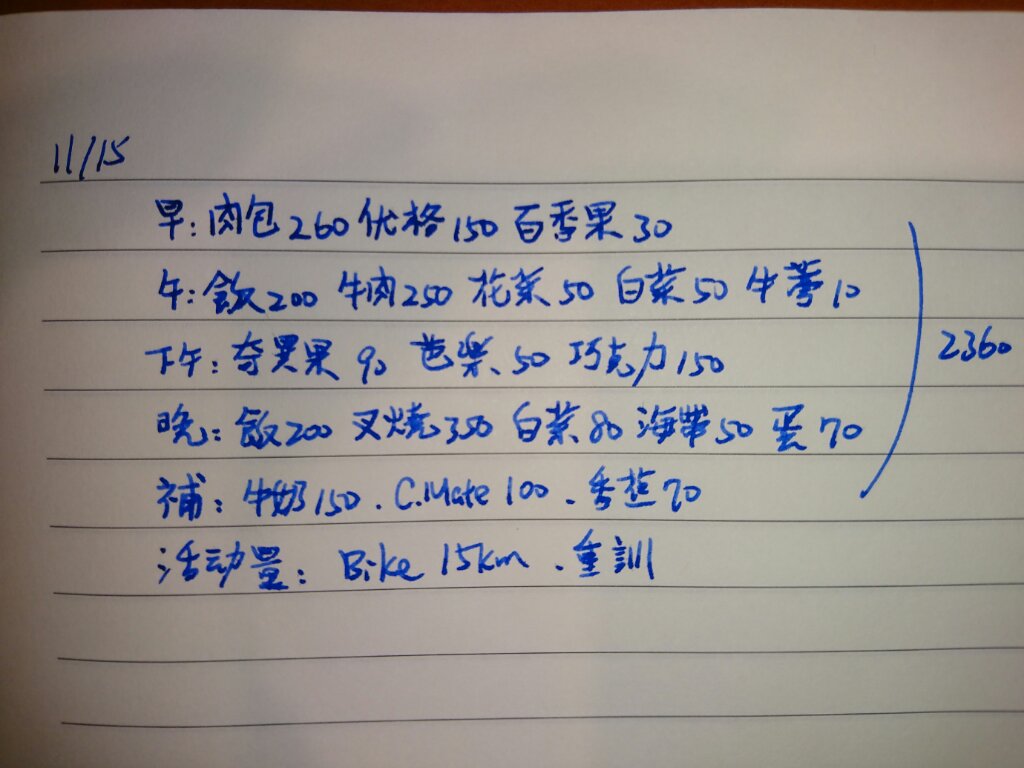 11/15
早：肉包260 优格150 百季果30
午：飯200 牛肉250 花菜50 白菜50 牛蒡10
下午：奇異果 90 芭樂50 巧克力150
2360
晚：飯200 叉燒350 白菜80 海帶50 蛋70
補：牛奶150．C.Mate 100．香蕉70
活动量：Bike 15km．重訓